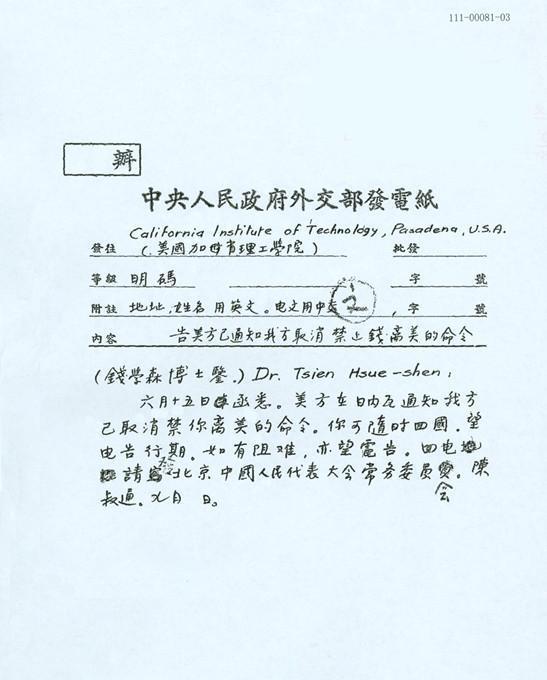 111-00081-03
辦
中央人民政府外交部發電紙
California Institute of Technology, Pasadena, U.S.A.
發往 (美國加州省理工學院) 批發
等級 明碼 字 號
附註 地址,姓名用英文。电文用中文 字 號
內容 告美方已通知我方取消禁止錢離美的命令
(錢學森博士鑒) Dr. Tsien Hsue-shen:
六月十五日函悉。美方在日內瓦通知我方
已取消禁你離美的命令。你可隨时回國。望
电告行期。如有阻难,亦望電告。回电
請發北京中國人民代表大会常务委員会。陳
叔通。九月 日。